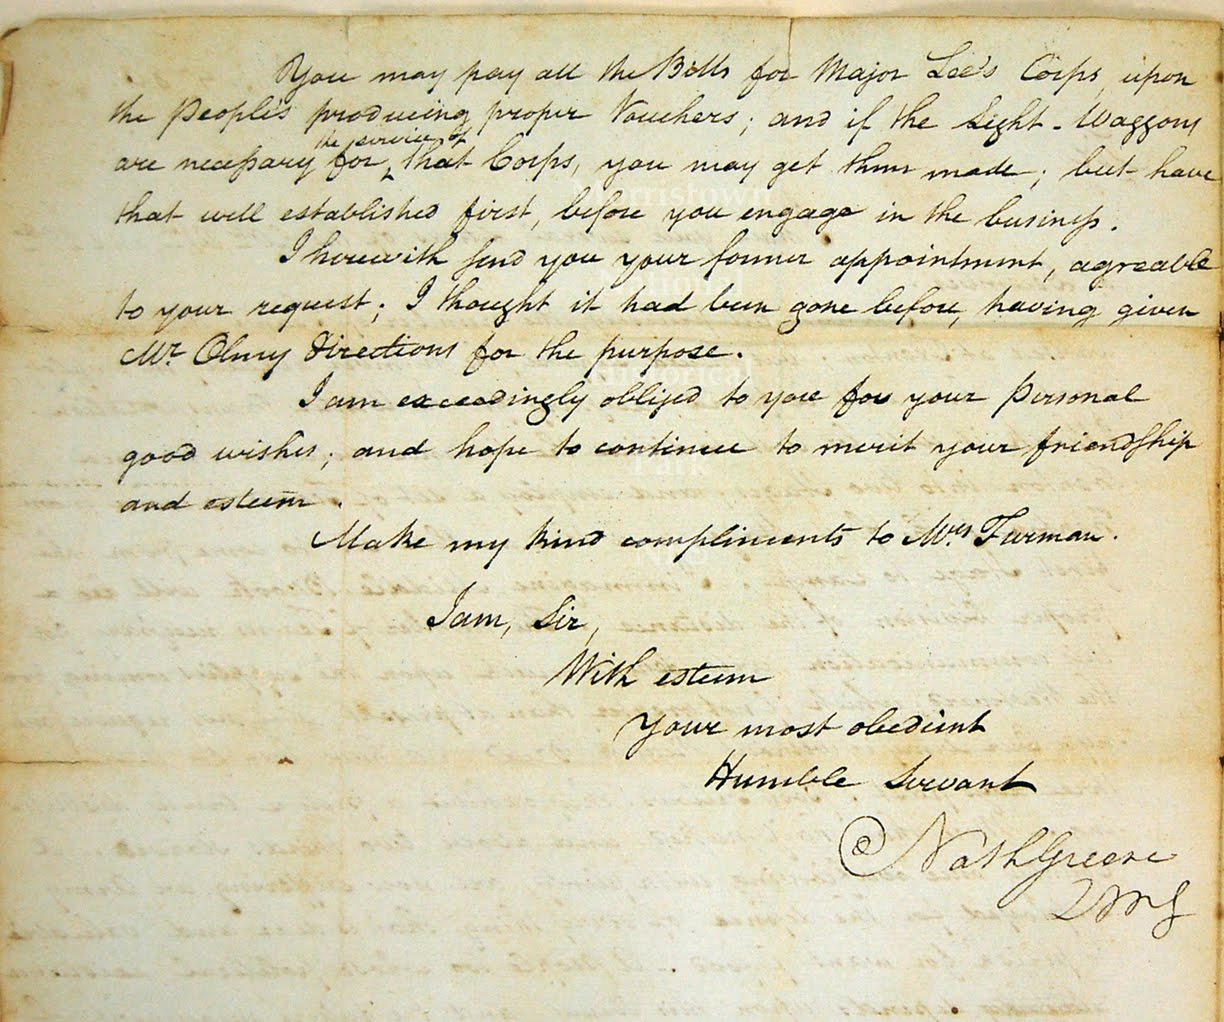 You may pay all the Bills for Major Lee's Corps, upon
the People's producing proper Vouchers; and if the Light-Waggons
are necessary for ^the service of that Corps, you may get them made; but have
that well established first, before you engage in the business.
I herewith send you your former appointment, agreable
to your request; I thought it had been gone before, having given
Mr. Olney Directions for the purpose.
I am exceedingly obliged to you for your Personal
good wishes; and hope to continue to merit your friendship
and esteem.
Make my kind compliments to Mrs Furman.
I am, Sir,
With esteem
Your most obedient
Humble Servant
Nath Greene
QMG
Morristown
National
Historical
Park
NPS